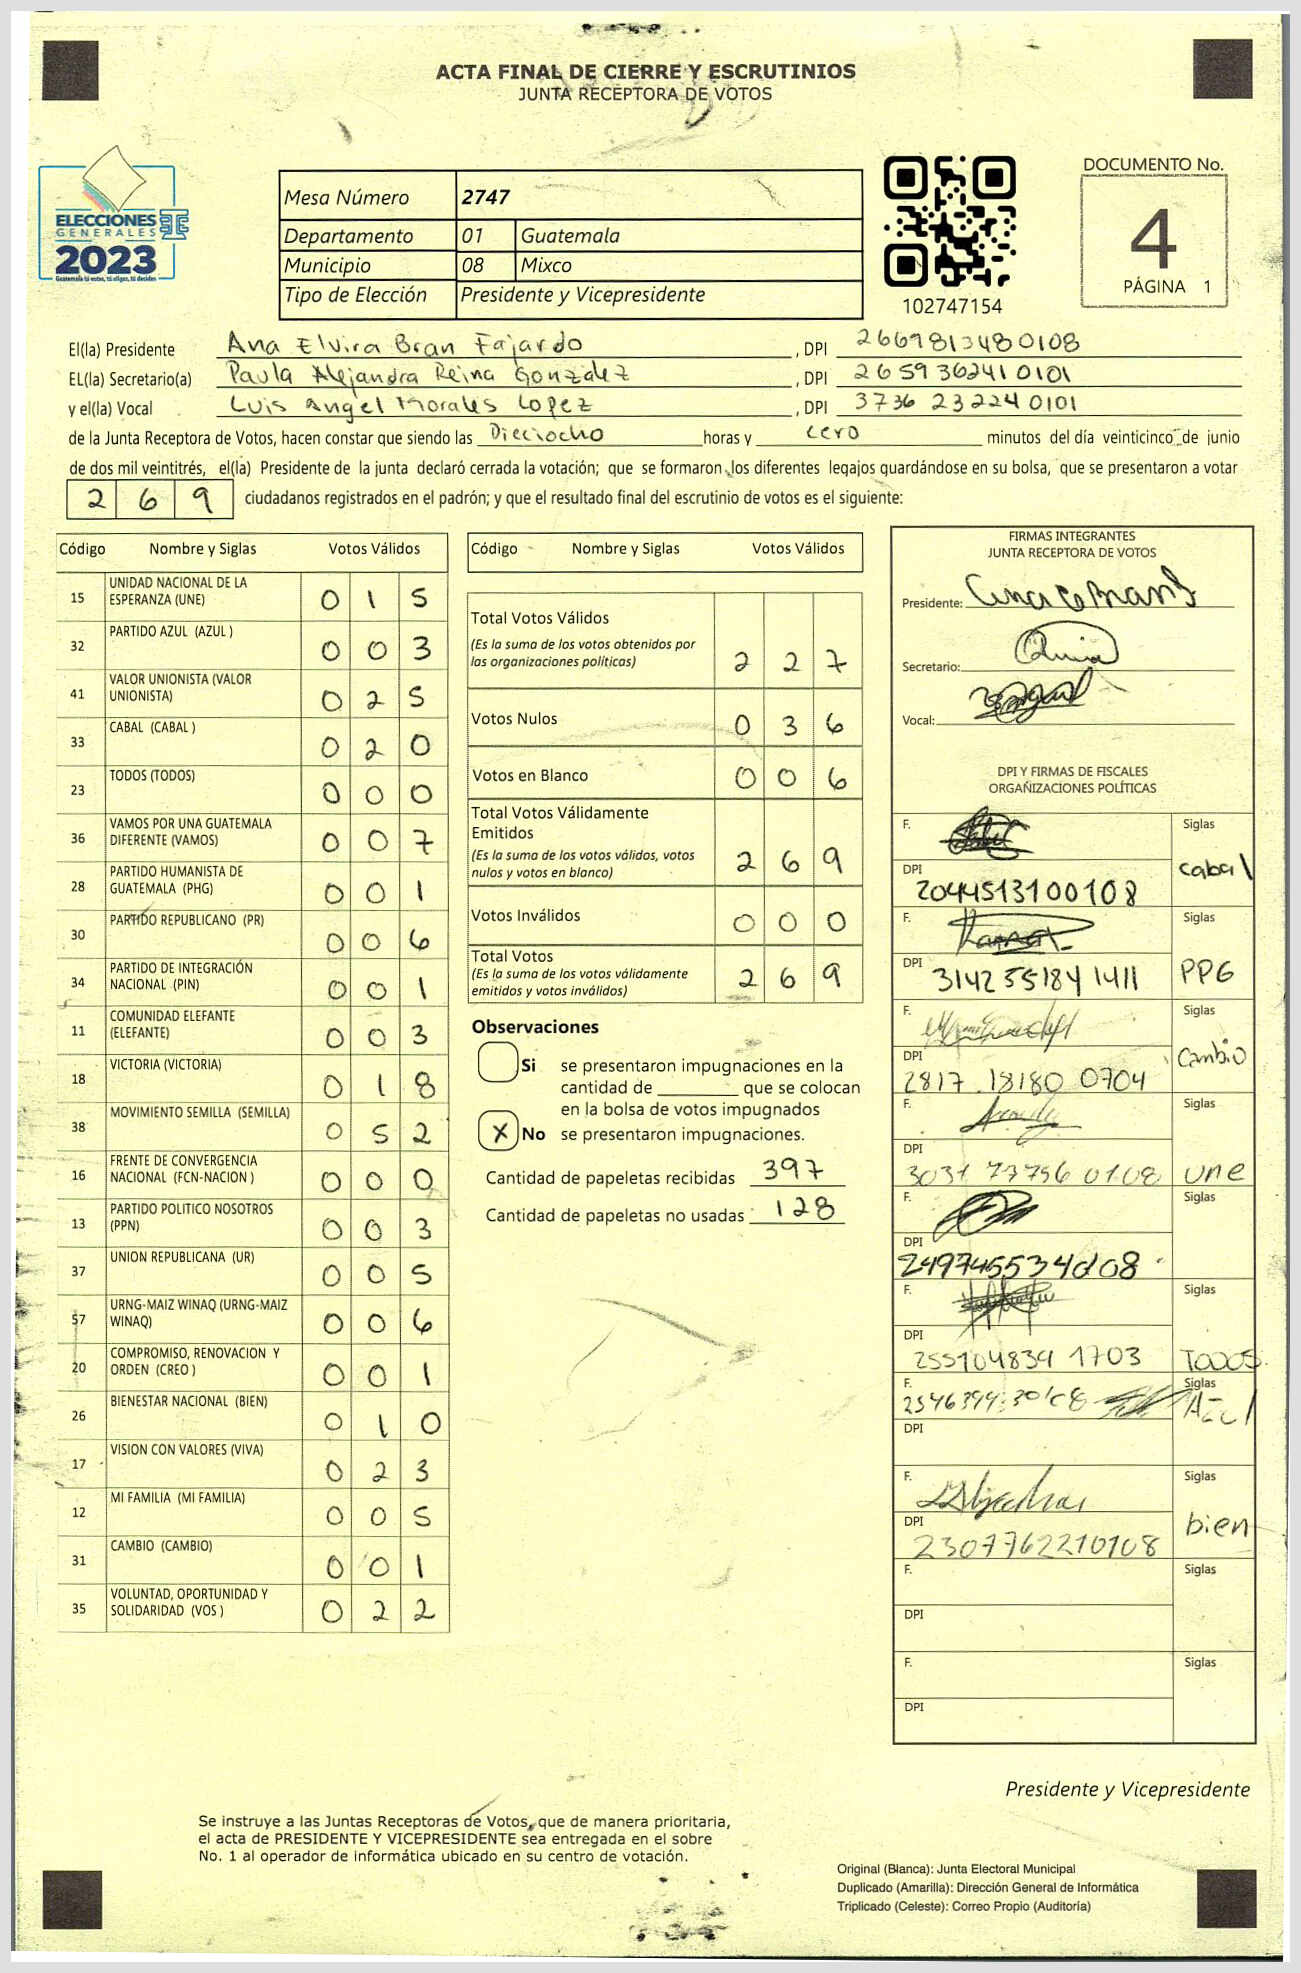 ACTA FINAL DE CIERRE Y ESCRUTINIOS
JUNTA RECEPTORA DE VOTOS
ELECCIONES
GENERALES
2023
Guatemala tú votas, tú eliges, tú decides
Mesa Número 2747
Departamento 01 Guatemala
Municipio 08 Mixco
Tipo de Elección Presidente y Vicepresidente
102747154
DOCUMENTO No.
4
PÁGINA 1
El(la) Presidente Ana Elvira Bran Fajardo , DPI 2669813480108
EL(la) Secretario(a) Paula Alejandra Reina González , DPI 2659362410101
y el(la) Vocal Luis Angel Morales Lopez , DPI 3736 23224 0101
de la Junta Receptora de Votos, hacen constar que siendo las Dieciocho horas y cero minutos del día veinticinco de junio
de dos mil veintitrés, el(la) Presidente de la junta declaró cerrada la votación; que se formaron los diferentes legajos guardándose en su bolsa, que se presentaron a votar
2 6 9 ciudadanos registrados en el padrón; y que el resultado final del escrutinio de votos es el siguiente:
Código Nombre y Siglas Votos Válidos
15 UNIDAD NACIONAL DE LA ESPERANZA (UNE) 0 1 5
32 PARTIDO AZUL (AZUL ) 0 0 3
41 VALOR UNIONISTA (VALOR UNIONISTA) 0 2 5
33 CABAL (CABAL ) 0 2 0
23 TODOS (TODOS) 0 0 0
36 VAMOS POR UNA GUATEMALA DIFERENTE (VAMOS) 0 0 7
28 PARTIDO HUMANISTA DE GUATEMALA (PHG) 0 0 1
30 PARTIDO REPUBLICANO (PR) 0 0 6
34 PARTIDO DE INTEGRACIÓN NACIONAL (PIN) 0 0 1
11 COMUNIDAD ELEFANTE (ELEFANTE) 0 0 3
18 VICTORIA (VICTORIA) 0 1 8
38 MOVIMIENTO SEMILLA (SEMILLA) 0 5 2
16 FRENTE DE CONVERGENCIA NACIONAL (FCN-NACION ) 0 0 0
13 PARTIDO POLITICO NOSOTROS (PPN) 0 0 3
37 UNION REPUBLICANA (UR) 0 0 5
57 URNG-MAIZ WINAQ (URNG-MAIZ WINAQ) 0 0 6
20 COMPROMISO, RENOVACION Y ORDEN (CREO ) 0 0 1
26 BIENESTAR NACIONAL (BIEN) 0 1 0
17 VISION CON VALORES (VIVA) 0 2 3
12 MI FAMILIA (MI FAMILIA) 0 0 5
31 CAMBIO (CAMBIO) 0 0 1
35 VOLUNTAD, OPORTUNIDAD Y SOLIDARIDAD (VOS ) 0 2 2
Código Nombre y Siglas Votos Válidos
Total Votos Válidos
(Es la suma de los votos obtenidos por
las organizaciones políticas) 2 2 7
Votos Nulos 0 3 6
Votos en Blanco 0 0 6
Total Votos Válidamente
Emitidos
(Es la suma de los votos válidos, votos
nulos y votos en blanco) 2 6 9
Votos Inválidos 0 0 0
Total Votos
(Es la suma de los votos válidamente
emitidos y votos inválidos) 2 6 9
Observaciones
Si se presentaron impugnaciones en la
cantidad de que se colocan
en la bolsa de votos impugnados
X No se presentaron impugnaciones.
Cantidad de papeletas recibidas 397
Cantidad de papeletas no usadas 128
FIRMAS INTEGRANTES
JUNTA RECEPTORA DE VOTOS
Presidente:
Secretario:
Vocal:
DPI Y FIRMAS DE FISCALES
ORGANIZACIONES POLÍTICAS
F. Siglas
cabal
DPI
2044513100108
F. Siglas
PPG
DPI
3142 55184 1411
F. Siglas
Cambio
DPI
2817 18180 0704
F. Siglas
une
DPI
3031 77756 0108
F. Siglas
DPI
F. Siglas
TODOS
DPI
255104839 1703
F. Siglas
Azul
DPI
F. Siglas
bien
DPI
2307762210108
F. Siglas
DPI
F. Siglas
DPI
Presidente y Vicepresidente
Se instruye a las Juntas Receptoras de Votos, que de manera prioritaria,
el acta de PRESIDENTE Y VICEPRESIDENTE sea entregada en el sobre
No. 1 al operador de informática ubicado en su centro de votación.
Original (Blanca): Junta Electoral Municipal
Duplicado (Amarilla): Dirección General de Informática
Triplicado (Celeste): Correo Propio (Auditoría)